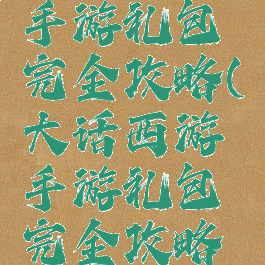 手游礼包
完全攻略(
大话西游
手游礼包
完全攻略